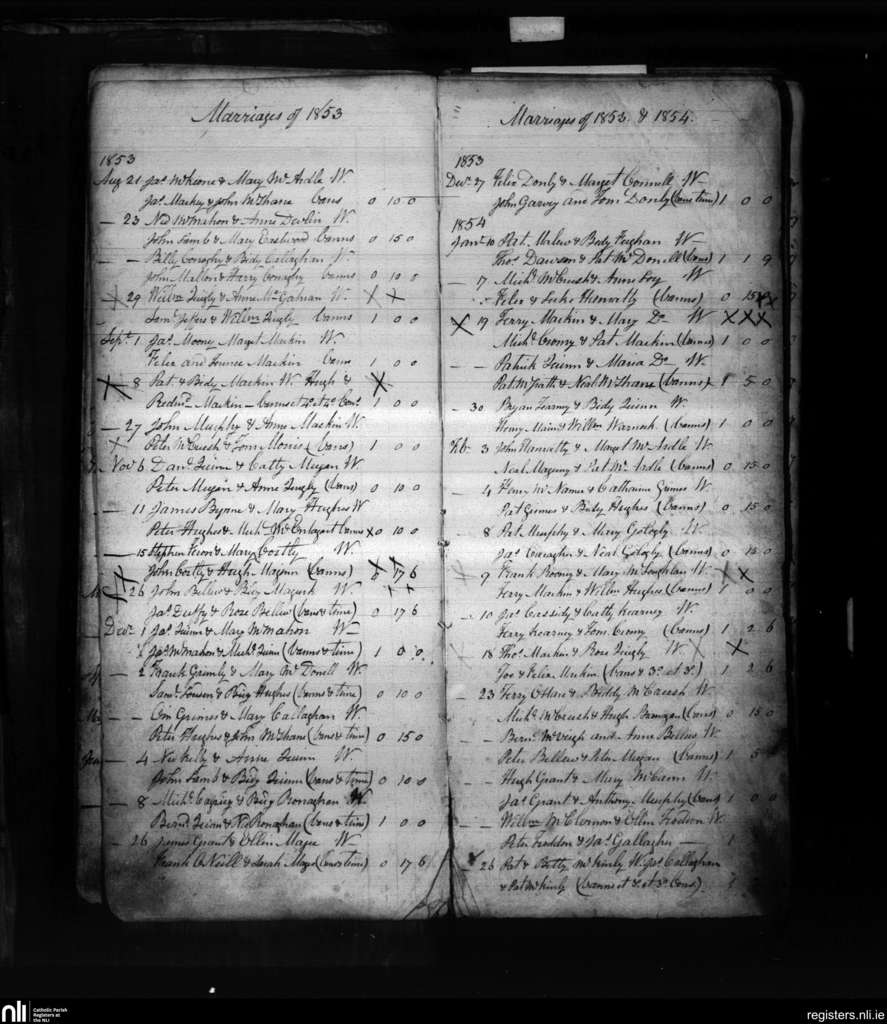 Marriages of 1853
1853
Aug 21 Jas McKeone & Mary McArdle W.
Jas Mackey & John McShane bans 0 10 0
— 23 Ned McMahon & Anne Devlin W.
John Lamb & Mary Eastwood banns 0 15 0
— — Billy Conaghy & Bidy Callaghan W.
John Mallon & Harry Conaghy banns 0 10 0
X 29 Willm & Anne W. X X
Saml Jeffers & Willm banns 1 0 0
Sept. 1 Jas Mooney Margt Mackin W.
Felix and Mackin bans 1 0 0
X 8 Pat. & Bidy Mackin W. Hugh & X
Mackin — banns et 4o et 4o Con. 1 0 0
— 27 John Murphy & Anne Mackin W.
X Peter McCreesh & Tom Morris (bans) 1 0 0
Nov 6 Danl Quinn & Catty Megan W.
Peter Megan & Anne (bans) 0 10 0
— 11 James Byrne & Mary Hughes W
Peter Hughes & Michl McEntagart banns X 0 10 0
— 15 Stephen & Mary Costly W.
John Costly & Hugh (banns) 0 17 6
X 26 John Bellew & Bidy Magurk W. X X
Jas Duffy & Rose Bellew (bans & time) 0 17 6
— Decr 1 Jas Quinn & Mary McMahon W—
Jas McMahon & Michl Quinn (banns & time) 1 0 0
— 2 Frank Grimly & Mary McDonell W.
Saml & Bidy Hughes (banns & time) 0 10 0
— — Grimes & Mary Callaghan W.
Peter Hughes & John McShane (bans & time) 0 15 0
— 4 Kelly & Anne Quinn W.
John Lamb & Bidy Quinn (bans & time) 0 10 0
— 8 Michl & Bidy Ronaghan W.
Bernd Quinn & Ronaghan (bans & time) 1 0 0
— 26 James Grant & Ellen Magee W—
Frank O'Neill & Sarah Magee (bans time) 0 17 6
Marriages of 1853 & 1854.
1853
Decr 27 Felix Donly & Margt Connell W—
John Garvey and Tom Donly (bans time) 1 0 0
1854
Jany 10 Pat. & Bidy Feghan W—
Thos Dawson & Pat McDonell (bans) 1 1 9
— 17 Michl McCreesh & Anne Foy W
Felix & Luke (banns) 0 15
X 19 Terry Mackin & Mary Do W— XXX
Michl & Pat Mackin (banns) 1 0 0
— Patrick Quinn & Maria Do — W.
Pat & Neal McShane (banns) 1 5 0
— 30 Bryan & Bidy Quinn W.
& Willm Warnock (banns) 1 0 0
Feb. 3 John & Margt McArdle W.
Neal & Pat McArdle (banns) 0 15 0
— 4 McNamee & Catharine Grimes W.
Pat Grimes & Bidy Hughes (banns) 0 15 0
— 8 Pat Murphy & Mary W.
Jas & Neal (banns) 0
— 9 Frank Rooney & Mary McLoughlan W. X X
Terry Mackin & Willm Hughes (banns) 1 0 0
— 10 Jas Cassidy & Catty Kearney W.
Terry Kearney & Tom (banns) 1 2 6
X 18 Thos Mackin & Rose W. X
Joe & Felix Mackin (bans & 3o et 3o) 1 2 6
— 23 Terry O'Hare & Biddy McCreesh W.
Michl McCreesh & Hugh (bans) 0 15 0
— Bernd McVeigh and Anne Bellew W.
Peter Bellew & Peter Megan (banns) 1 5
— Hugh Grant & Mary McCann W.
Jas Grant & Anthony Murphy (bans) 1 0 0
— — Willm McClernon & Ellen W.
Peter & Jas Gallagher — 1
— 26 Pat & Batty McKinly W. Jas Callaghan
& Pat McKinly (banns et 3o et 3o Cons).
nli
Catholic Parish
Registers at
the NLI
registers.nli.ie